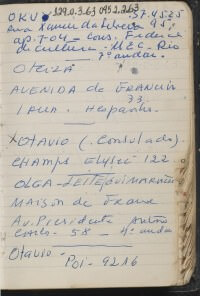 129.0.3.63 0953.263
OKU 37.45.25
Rua Xavier da Silveira 95,
ap. 704 - Cons. Federal
de cultura - MEC - Rio
7º andar.
OTEIZA
AVENIDA de FRANCIA
33
IRUN. Hespanha.
XOTAVIO (. Consulado).
CHAMPS Elysée 122
OLGA - LEITE GUIMARÃES
MAISON de France
Av. Presidente Antonio
Carlos - 58 - 4º andar
Otavio -
POI - 9216